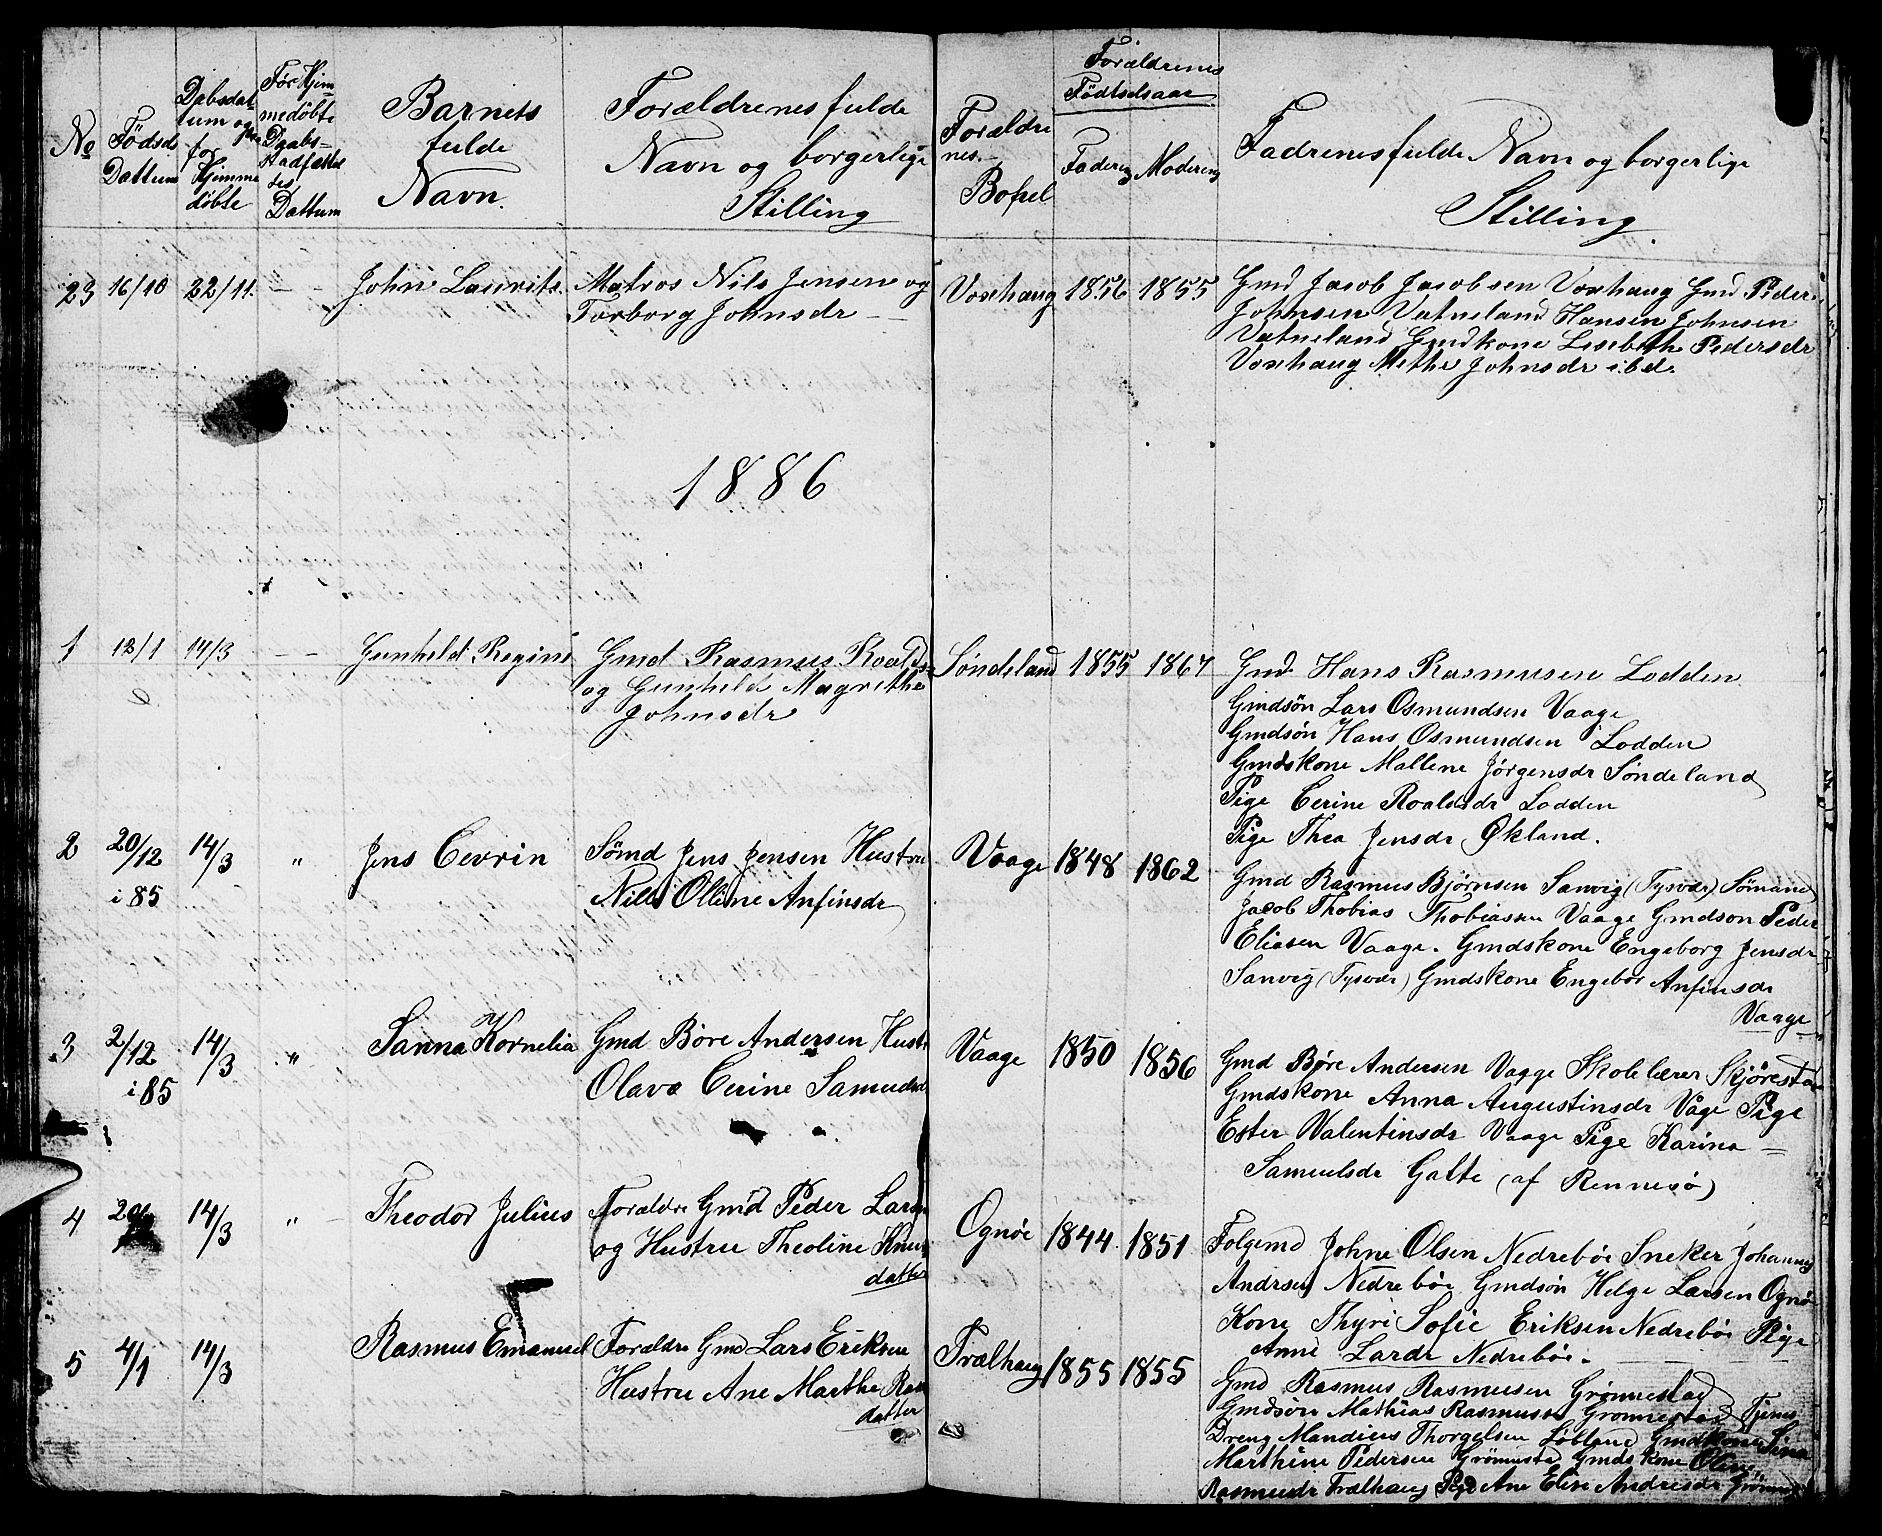 No
Födsels Dattum
Døbsdattum og for Hjemmedøbte
Før Hjemmedøbte Daabs Stadfættes Dattum
Barnets fulde Navn.
Forældrenes fulde Navn og borgerlige Stilling
Forældrenes Bopel
Forældrenes Födtselsaar
Faderens
Moderens
Fadrenes fulde Navn og borgerlige Stilling.
23 16/10 22/11. — — John Laurits. Matros Nils Jensen og
Torborg Johnsdr —
Voxhaug 1856 1855
Gmd Jacob Jacobsen Voxhaug Gmd Peder
Johnsen Vatneland Hansen Johnsen
Vatneland Gmdkone Lisebeth Pedersdr
Voxhaug Methe Johnsdr ibd.
1886
1 12/1 14/3 — — Gunhild Regine Gmd Rasmus Roalds
og Gunhild Magrethe
Johnsdr
Söndeland 1855 1867
Gmd. Hans Rasmusen Lodden
Gmdsön Lars Osmundsen Vaage
Gmdsön Hans Osmundsen Lodden
Gmdskone Mallene Jörgensdr Sönde land
Pige Cerine Roaldsdr Lodden
Pige Thea Jensdr Økland.
2 20/12 i 85 14/3 " Jens Cevrin Sømd Jens Jensen Hustru
Nille Olline Anfinsdr
Vaage 1848 1862
Gmd Rasmus Bjørnsen Sanvig (Tysvær) Sømand
Jacob Thobias Thobiasen Vaage Gmdson Peder
Eliasen Vaage. Gmdskone Engeborg Jensdr
Sanvig (Tysvær) Gmdskone Engebor Anfinsdr
Vaage
3 2/12 i 85 14/3 " Sanna Kornelia Gmd Böre Andersen Hust
Olava Cerine Samuelsd
Vaage 1850 1856
Gmd Børe Andersen Vagge Skolelærer Skjöresta
Gmdskone Anna Augustinsdr Våge Pige
Ester Valentinsdr Vaage Pige Karina
Samuelsdr Galte (af Rennesö)
4 14/3 " Theodor Julius Forældre Gmd Peder Larsen
og Hustru Theoline Knus
datter
Ognöe 1844 1851
Folgemd Johne Olsen Nedreböe Sneker Johannes
Andrsen Nedreböe Gmdsön Helge Larsen Ognö
Kone Thyri Sofie Eriksen Nedreböe Pige
Anne Larsdr Nedreböe.
5 4/1 14/3 Rasmus Emanuel Forældre Gmd Lars Eriksen
Hustru Ane Marthe Ras
datter
Frælhaug 1855 1855
Gmd Rasmus Rasmusen Grönnestad
Gmdsön Mathias Rasmusen Grønnestad Tjenes
Dreng Mandius Thorgelsen Gmdkone Sina
Marthine Pedersen Grönnesta Gmdskone Oline
Rasmusdr Frælhaug Pige Ane Elise Andresdr Grönnes